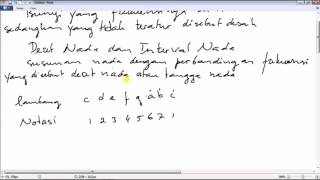 Bunyi yang frekuensinya
sedangkan yang tidak teratur disebut desah
Deret Nada dan Interval Nada
susunan nada dengan perbandingan frekuensi
yang disebut deret nada atau tangga nada
lambang c d e f g a b c
Notasi 1 2 3 4 5 6 7 1